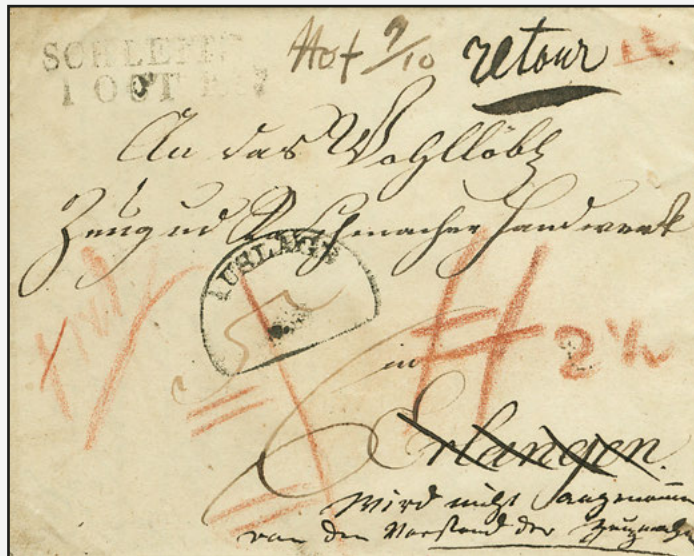 SCHLEIZ
1 OCT
Hof 9/10 retour 12
An das Wohllöbl
Zeug und Raschmacher Handwerk
AUSLAGE
in
2 ½
Erlangen.
Wird nicht angenommen
von dem Vorstand der